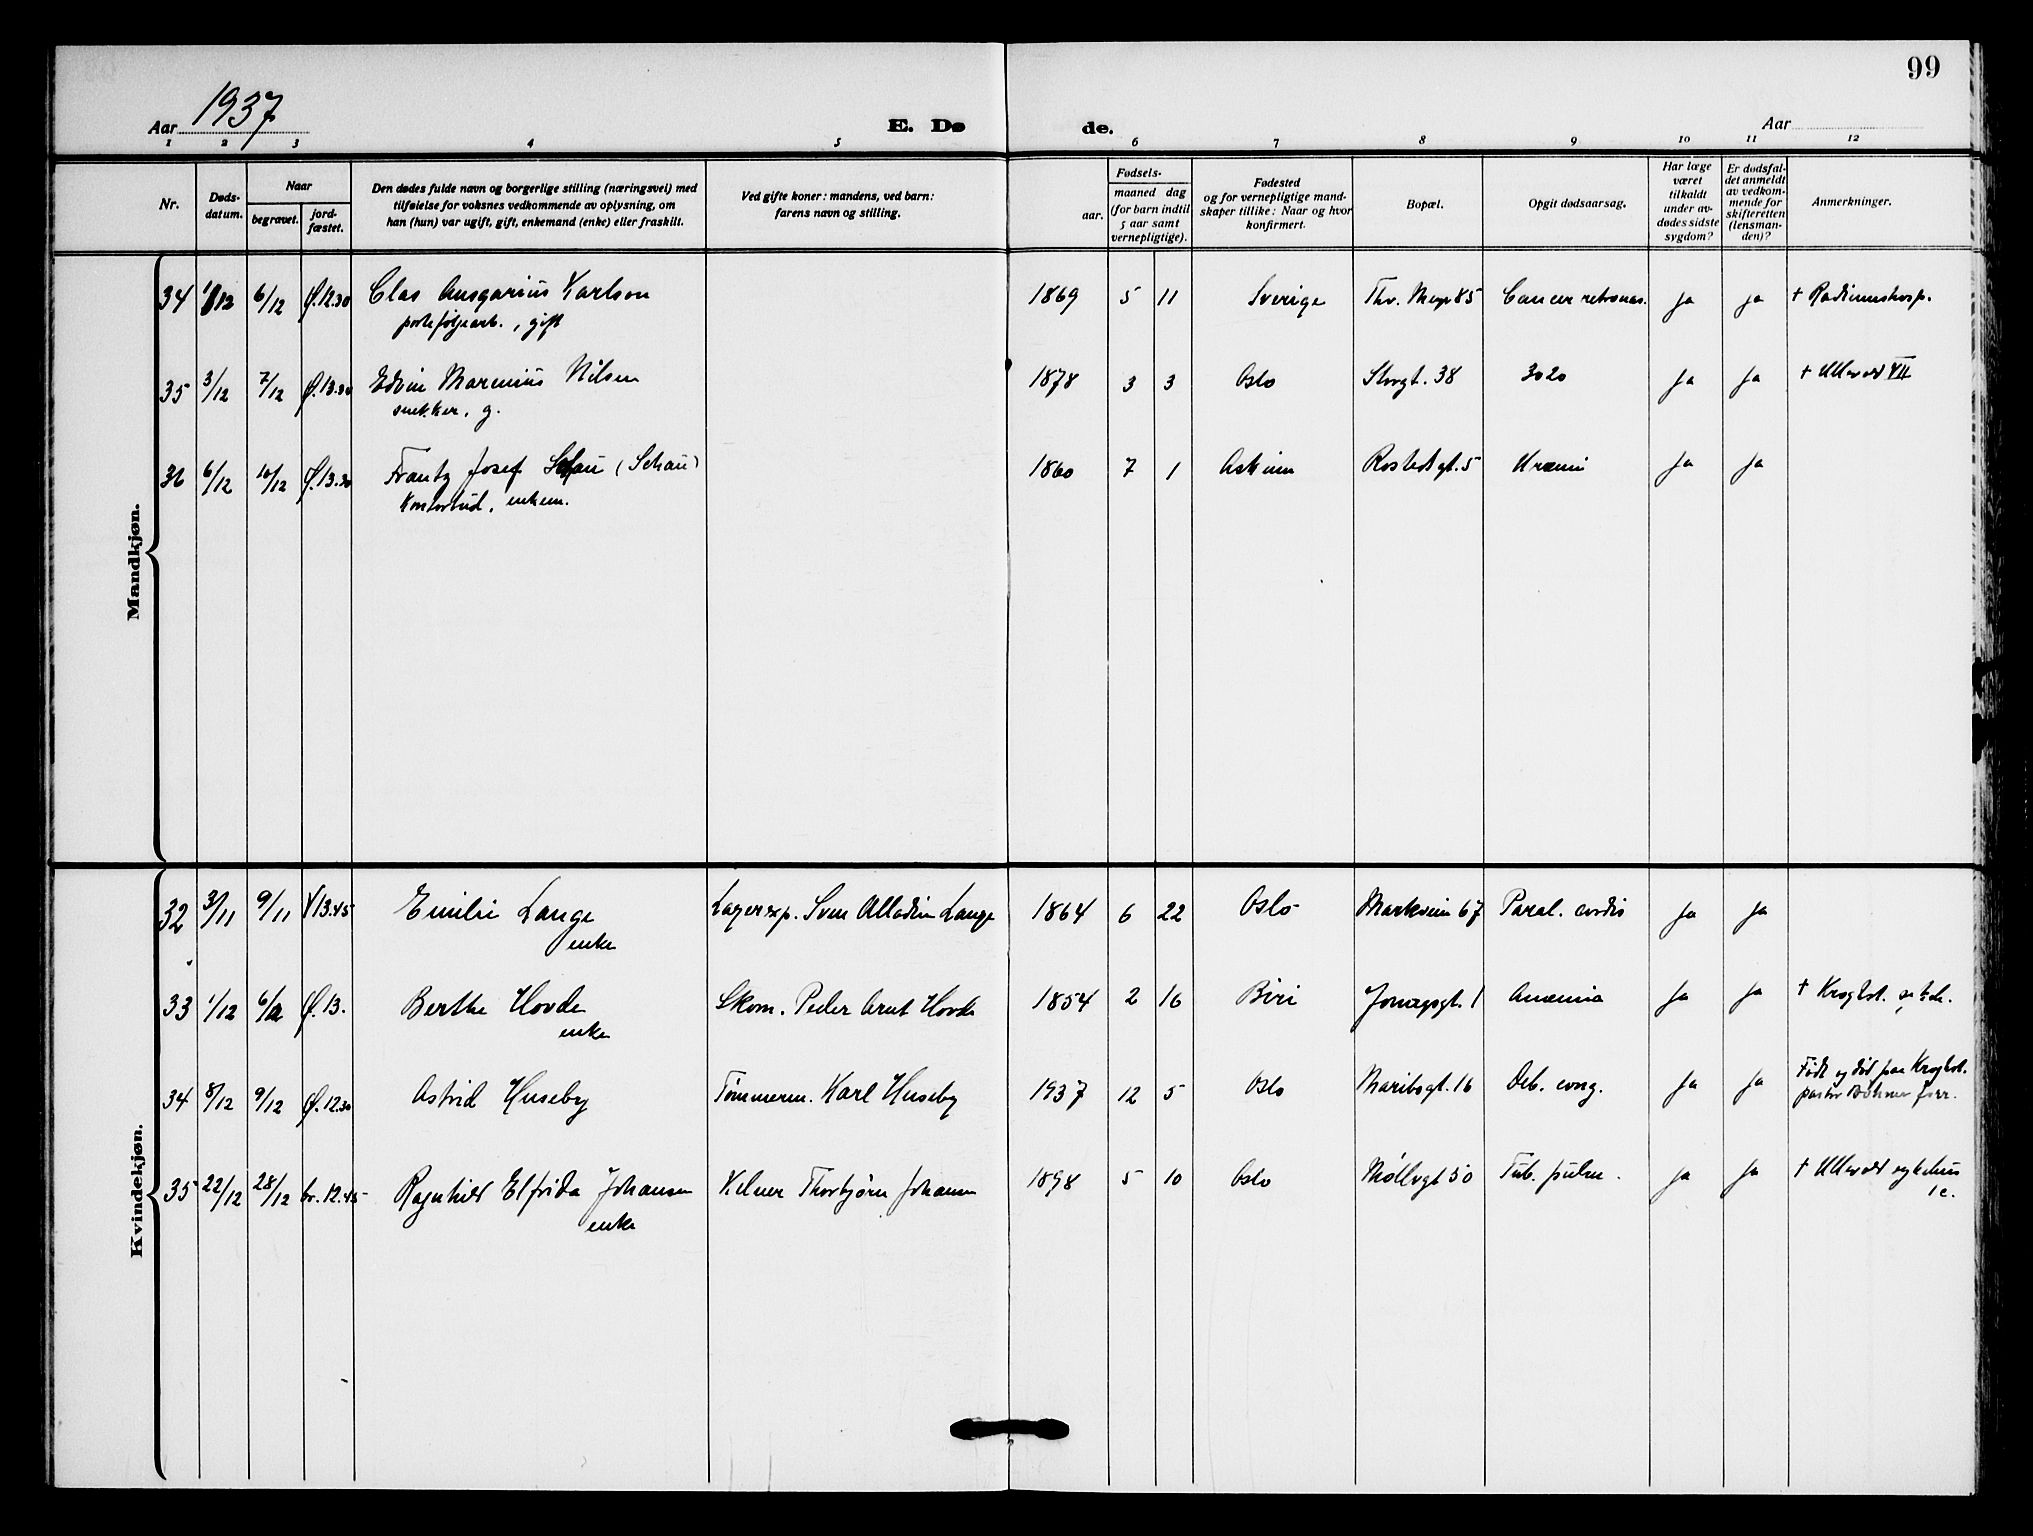 99
Aar 1937
E. Dø de.
Aar
1 2 3 4 5 6 7 8 9 10 11 12
Nr.
Døds-
datum.
Naar
begravet.
jord-
fæstet.
Den dødes fulde navn og borgerlige stilling (næringsvei) med
tilføielse for voksnes vedkommende av oplysning, om
han (hun) var ugift, gift, enkemand (enke) eller fraskilt.
Ved gifte koner: mandens, ved barn:
farens navn og stilling.
Fødsels-
aar.
maaned dag
(for barn indtil
5 aar samt
vernepligtige).
Fødested
og for vernepligtige mand-
skaper tillike: Naar og hvor
konfirmert.
Bopæl.
Opgit dødsaarsag.
Har læge
været
tilkaldt
under av-
dødes sidste
sygdom?
Er dødsfal-
det anmeldt
av vedkom-
mende for
skifteretten
(lensman-
den)?
Anmerkninger.
Mandkjøn.
34 1/12 6/12 Ø.12.30 Clas Ansgarius Karlson 1869 5 11 Sverige Thv. Meyer 85 Cancer ja ja + Radiumshosp.
porteføljearb., gift
35 3/12 7/12 Ø.13.30 Edvin Marenius Nilsen 1878 3 3 Oslo Storgt. 38 3020 ja ja + Ullevål VII
snekker, g.
36 6/12 10/12 Ø.13.30 Frantz Josef Schau (Schau) 1860 7 1 Askim Rostedtgt. 5 Uræmi ja ja
Kontorbud, enkem.
Kvindekjøn.
32 3/11 9/11 V 13.45 Emilie Lange Lagerexp. Sven Alladin Lange 1864 6 22 Oslo Markvein 67 Paral. cordis ja ja
enke
33 1/12 6/12 Ø.13. Berthe Hovde Skom. Peder Arnt Hovde 1854 2 16 Biri Fossvgt. 1 Anæmia ja ja + Krogst.
enke
34 8/12 9/12 Ø.12.30 Astrid Huseby Tømmerm. Karl Huseby 1937 12 5 Oslo Maribogt. 16 Deb. cong. ja ja Født og død paa Krogst.
pastor Bohmer forr.
35 22/12 28/12 kr. 12.45 Ragnhild Elfrida Johansen Kelner Thorbjørn Johansen 1898 5 10 Oslo Møllergt 50 Tub. pulm. ja ja + Ullevål sykehus
enke